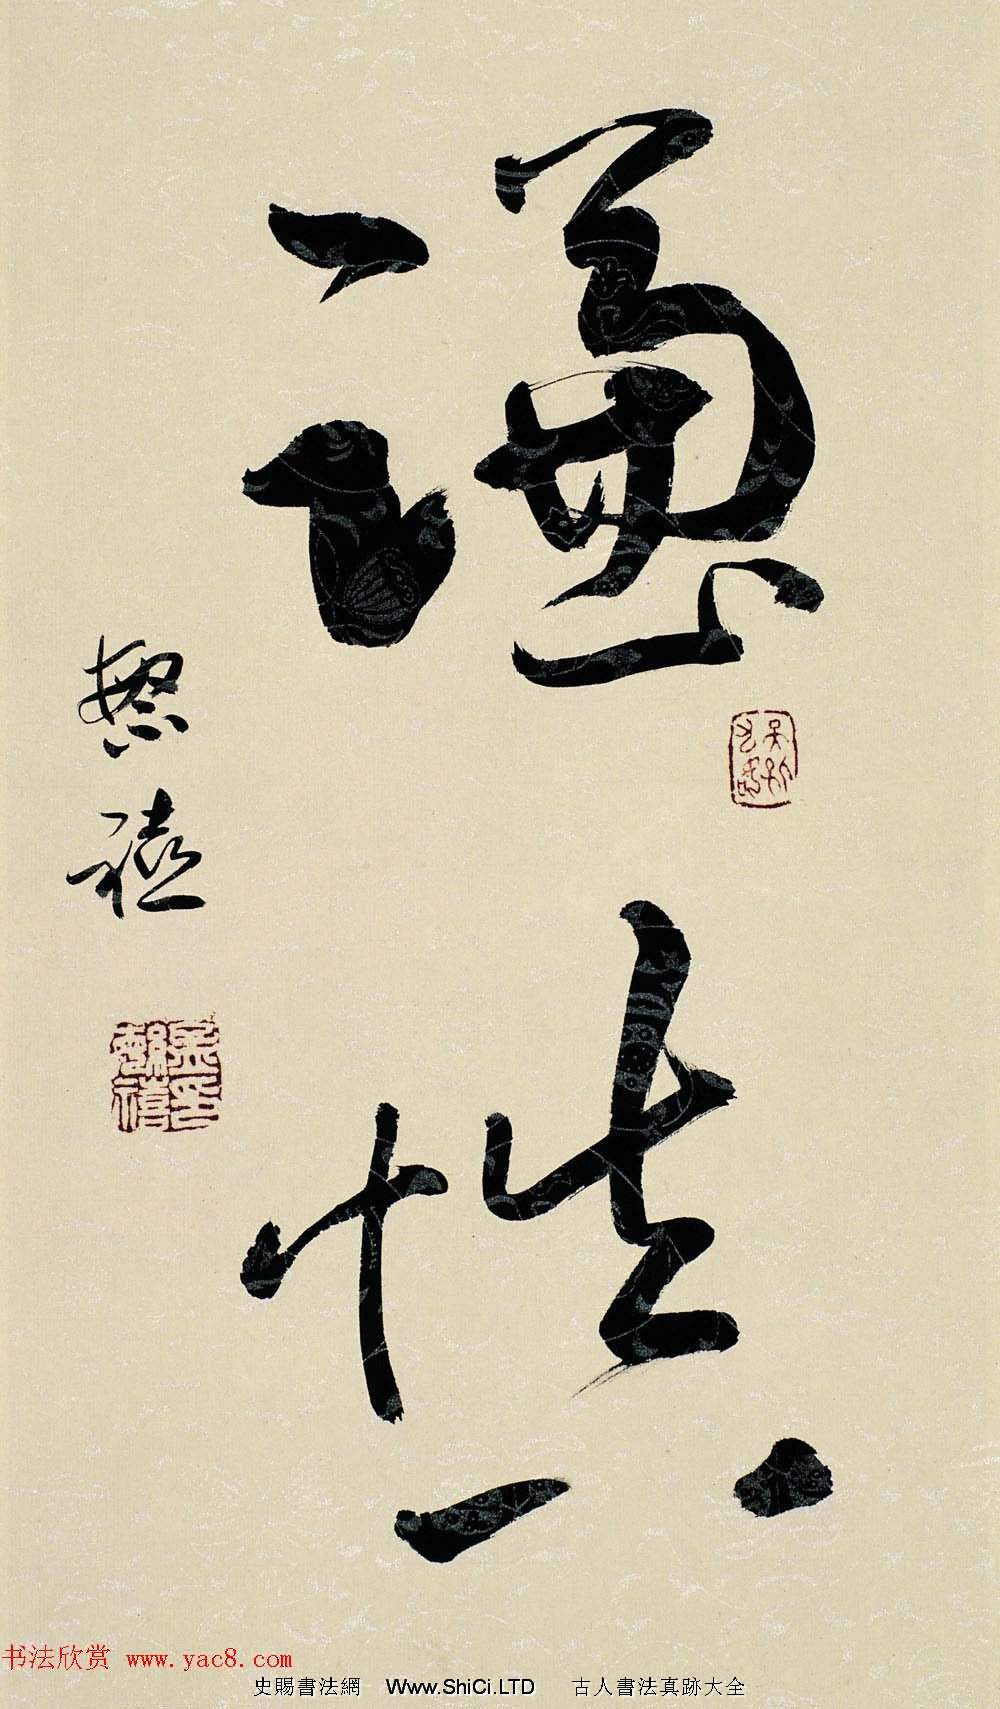 謙慎
懋禧
书法欣赏 www.yac8.com
史賜書法網 Www.ShiCi.LTD 古人書法真跡大全